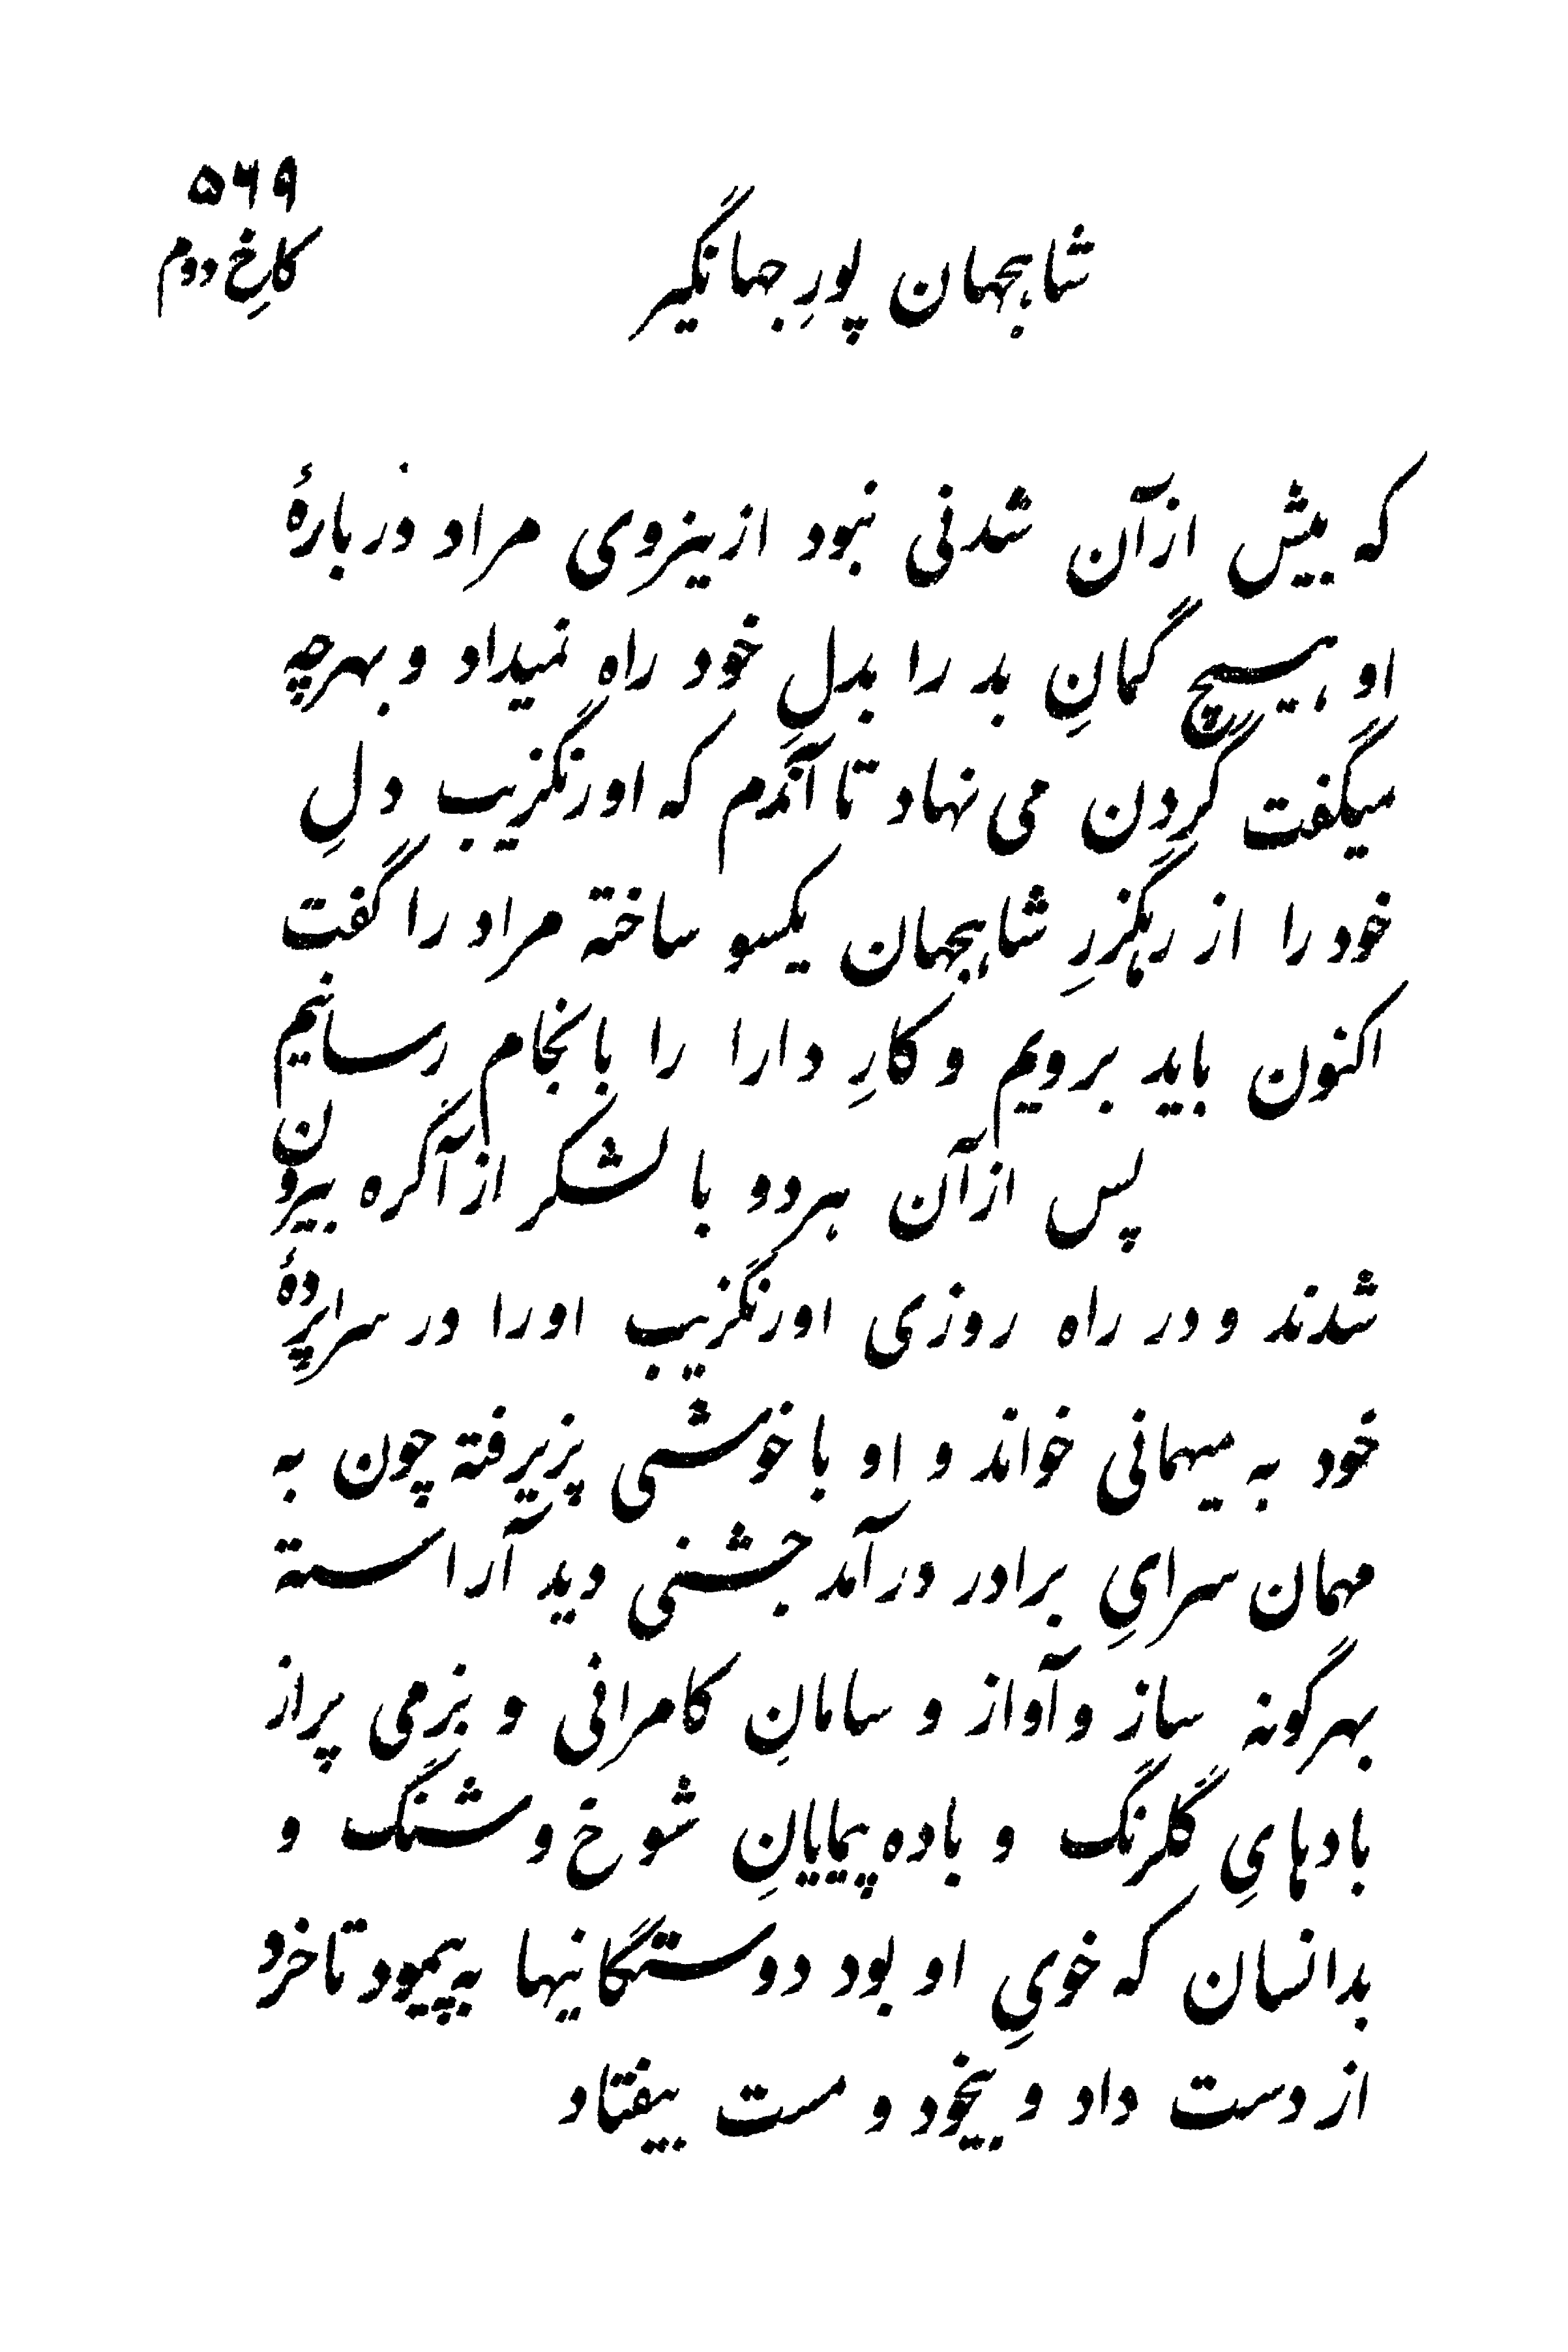 ۵۶۹
کاخِ دوم
شاهجهان پورِ جهانگیر
که بیش ازآن شدنی نبود ازینروی مراد دربارهٔ
او هیچ گمانِ بد را بدلِ خود راه نمیداد و بهرچه
میگفت گردن می نهاد تا آندم که اورنگزیب دلِ
خود را از رهگزرِ شاهجهان یکسو ساخته مراد را گفت
اکنون باید برویم و کارِ دارا را بانجام رسانیم
پس ازآن هردو با لشکر ازآگره بیرون
شدند و در راه روزی اورنگزیب اورا در سراپردهٔ
خود به میهمانی خواند و او با خوشی پزیرفته چون به
مهمان سرایِ برادر درآمد جشنی دید آراسته
بهرگونه ساز وآواز و سامانِ کامرانی و بزمی پراز
بادهایِ گلرنگ و باده پیمایانِ شوخ و شنگ و
بدانسان که خویِ او بود دوستگانیها به پیمود تاخرد
از دست داد و بیخود و مست بیفتاد